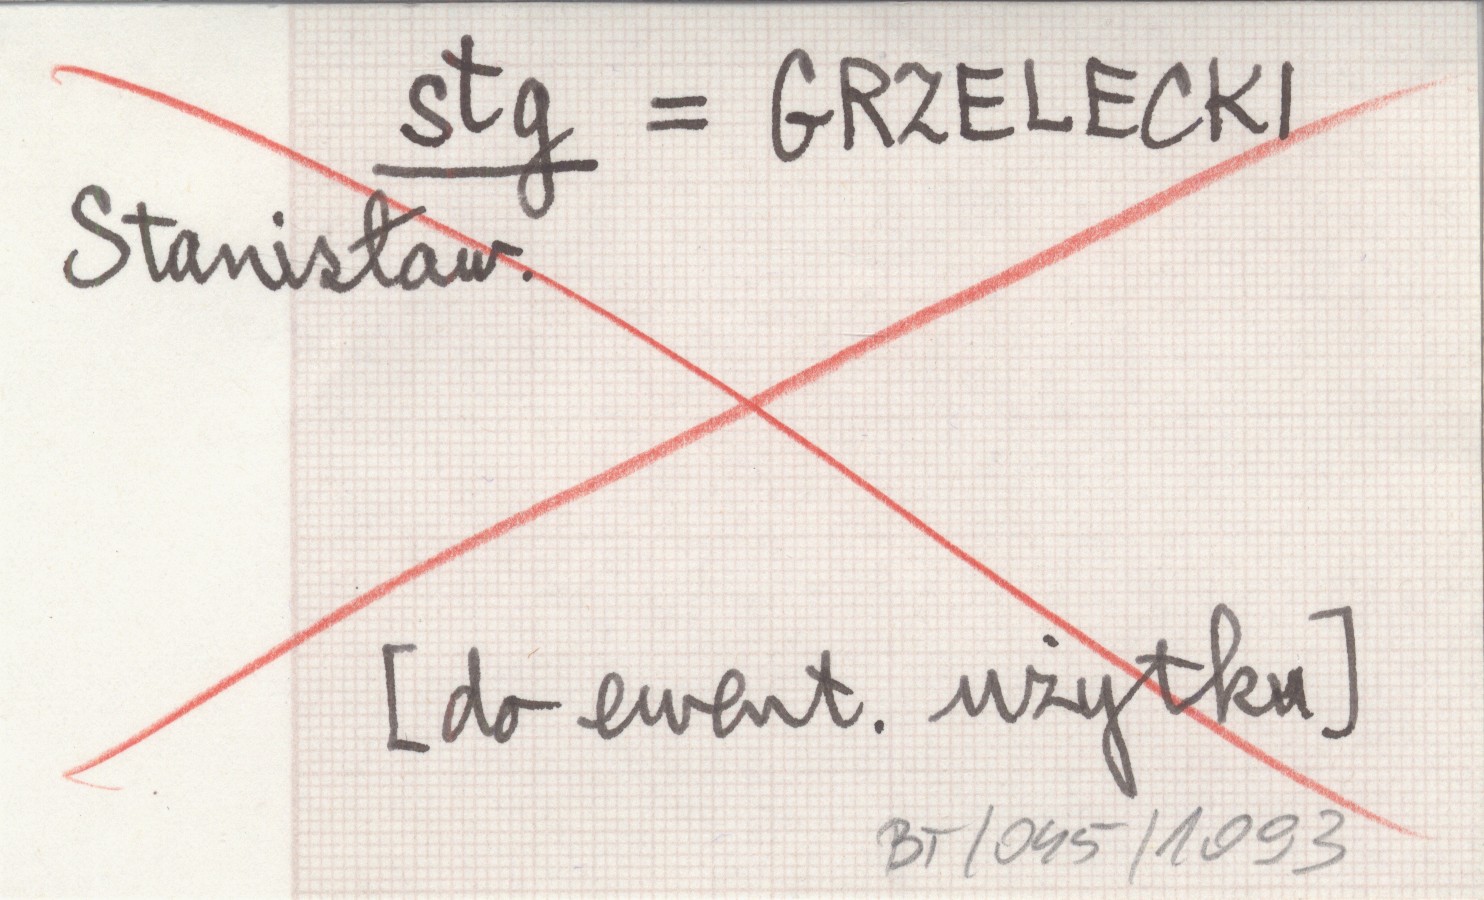 stg = GRZELECKI
Stanisław.
[do ewent. użytku]
BT/045/1093